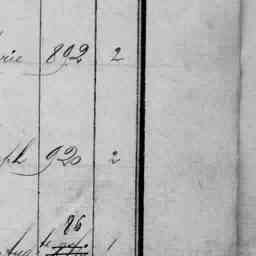 rie 892 2
ph 920 2
86
1